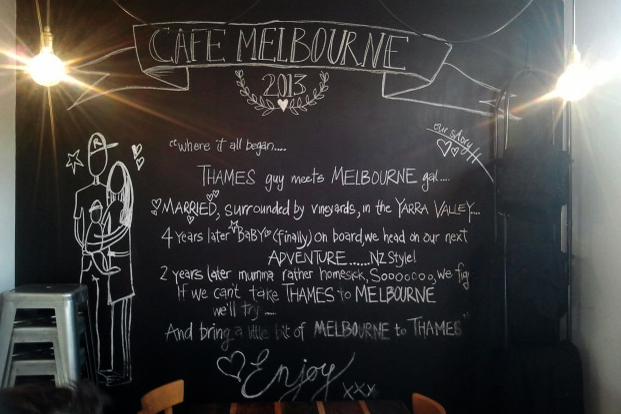 CAFE MELBOURNE
2013
our story!!
"where it all began....
THAMES guy meets MELBOURNE gal....
MARRIED, surrounded by vineyards, in the YARRA VALLEY....
4 years later "BABY" (finally) on board, we head on our next
ADVENTURE...... NZ Style!
2 years later mumma rather homesick, Sooooooo, we fig
If we can't take THAMES to MELBOURNE
we'll try ....
And bring a little bit of MELBOURNE to THAMES"
Enjoy
xxx
R